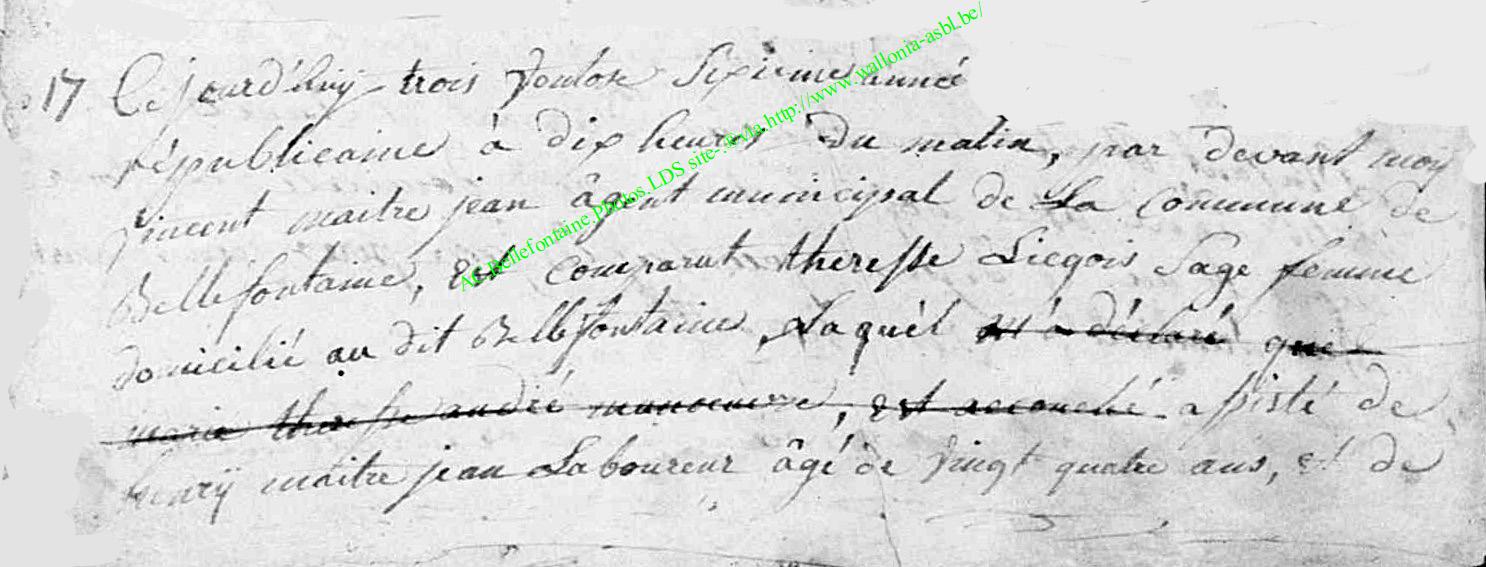 17 Ce jourd'huy trois Ventose Sixieme année
républicaine à dix heures du matin, par devant moy
Vincent maitre jean âgent municipal de La commune de
Bellefontaine, Est comparut theresse Liegois Sage femme
domicilié au dit Bellefontaine, Laquèl m'a déclaré que
marie theresse andré manoeuvre, est accouché assisté de
henrÿ maitre jean Laboureur âgé de vingt quatre ans, et de
AC.Bellefontaine.Photos.LDS site-.&via.http://www.wallonia-asbl.be/